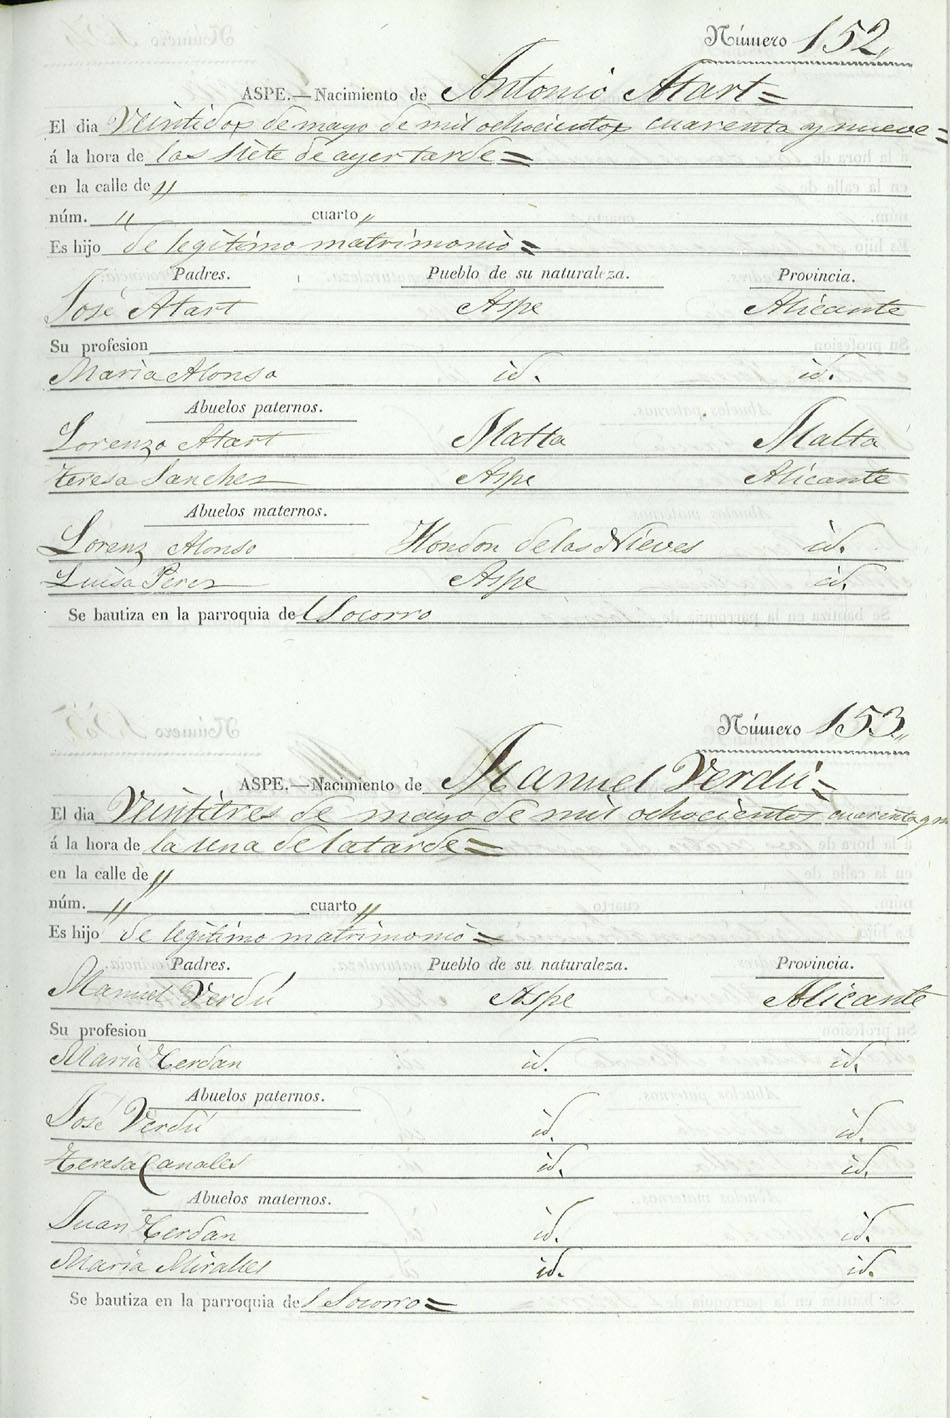 Número 152,,
ASPE.—Nacimiento de Antonio Atart=
El dia Veintidos de mayo de mil ochocientos cuarenta y nueve=
á la hora de las siete de ayer tarde=
en la calle de "
núm. " cuarto "
Es hijo de legitimo matrimonio=
Padres. Pueblo de su naturaleza. Provincia.
José Atart Aspe Alicante
Su profesion
Maria Alonso id. id.
Abuelos paternos.
Lorenzo Atart Malta Malta
Teresa Sanchez Aspe Alicante
Abuelos maternos.
Lorenz Alonso Hondon de las Nieves id.
Luisa Perez Aspe id.
Se bautiza en la parroquia del Socorro
Número 153,,
ASPE.—Nacimiento de Manuel Verdú=
El dia Veintitres de mayo de mil ochocientos cuarenta y n
á la hora de la una de la tarde=
en la calle de "
núm. " cuarto "
Es hijo de legitimo matrimonio=
Padres. Pueblo de su naturaleza. Provincia.
Manuel Verdú Aspe Alicante
Su profesion
Maria Cerdan id. id.
Abuelos paternos.
José Verdú id. id.
Teresa Canales id. id.
Abuelos maternos.
Juan Cerdan id. id.
Maria Miralles id. id.
Se bautiza en la parroquia del Socorro=